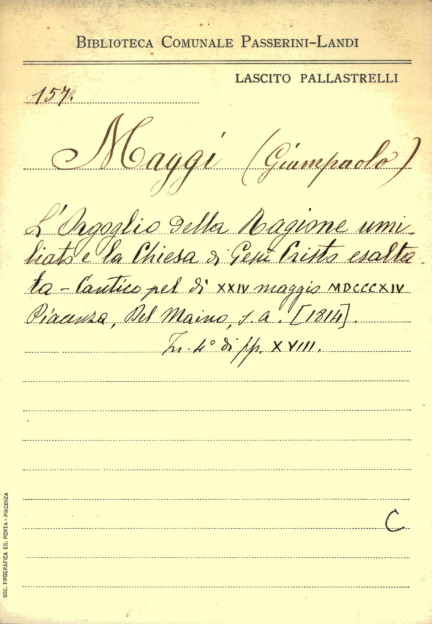 BIBLIOTECA COMUNALE PASSERINI-LANDI
LASCITO PALLASTRELLI
157.
Maggi (Giampaolo)
L'Orgoglio della Ragione umi-
liato e la Chiesa di Gesù Cristo esalta-
ta - Cantico pel dì XXIV maggio MDCCCXIV
Piacenza, Del Maino, s. a. [1814].
In-4° di pp. XVIII.
C
SOC. TIPOGRAFICA ED. PORTA - PIACENZA